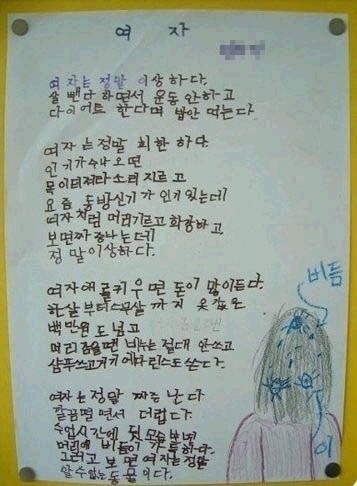 여 자
여자는 정말 이상하다.
살 뺀다 하면서 운동 안하고
다이어트 한다며 밥만 먹는다
여자는정말 희한하다.
인기가수나오면
목이터져라소리지르고
요즘 동방신기가 인기있는데
여자처럼 머리기르고 화장하고
보면짜증나는데
정말이상하다.
여자애 키우면 돈이 많이든다.
한살부터스무살까지 옷값은
백만원도넘고
머리감을땐 비누는 절대 안쓰고
샴푸쓰고거기에다린스도쓴다.
여자는정말 짜증난다
깔끔떨면서 더럽다.
수업시간에 뒷모습보면
머리에 비듬이 가득하다.
그러고 보면 여자는정말
알수없는동물이다.
비듬
이